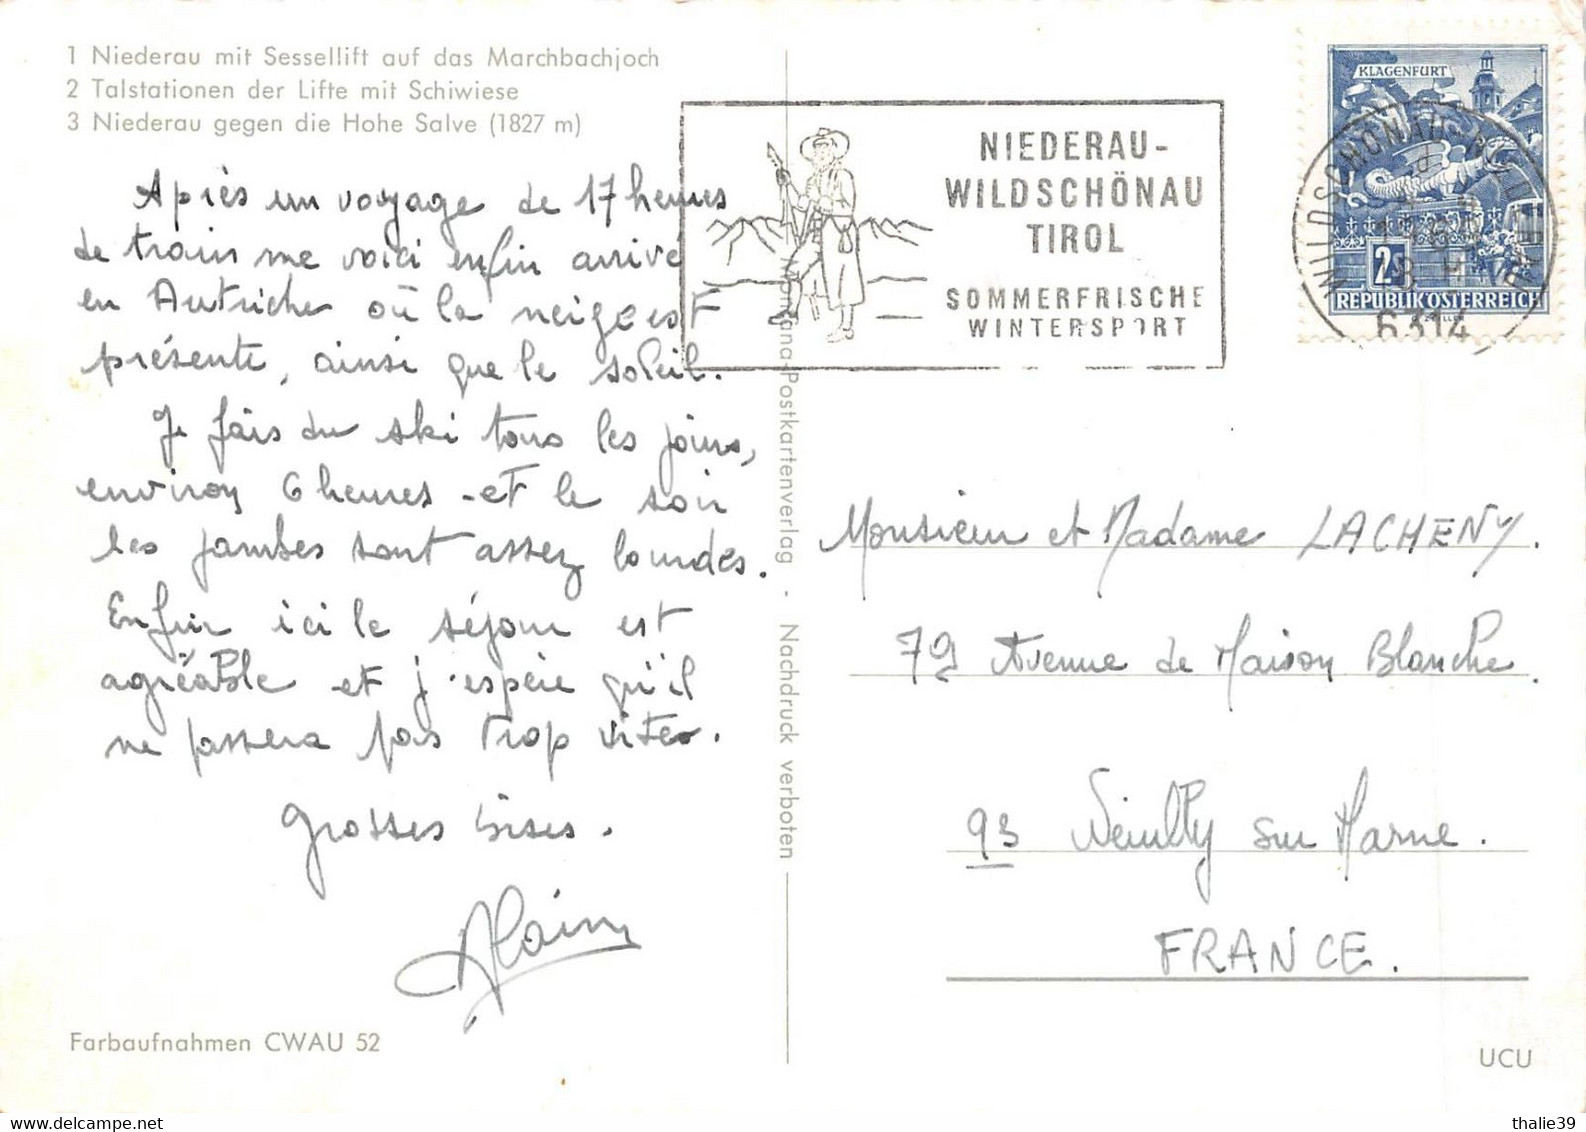 1 Niederau mit Sessellift auf das Marchbachjoch
2 Talstationen der Lifte mit Schiwiese
3 Niederau gegen die Hohe Salve (1827 m)
Après un voyage de 17 heures
de train me voici enfin arrivé
en Autriche où la neige est
présente, ainsi que le soleil.
Je fais du ski tous les jours,
environ 6 heures - et le soir
les jambes sont assez lourdes.
Enfin ici le séjour est
agréable et j'espère qu'il
ne passera pas trop vite.
Grosses bises.
Alain
Farbaufnahmen CWAU 52
Postkartenverlag - Nachdruck verboten
NIEDERAU-
WILDSCHÖNAU
TIROL
SOMMERFRISCHE
WINTERSPORT
KLAGENFURT
2S
REPUBLIK ÖSTERREICH
WILDSCHÖNAU
6314
Monsieur et Madame LACHENY.
79 Avenue de Maison Blanche.
93 Neuilly sur Marne.
FRANCE.
UCU
thalie39